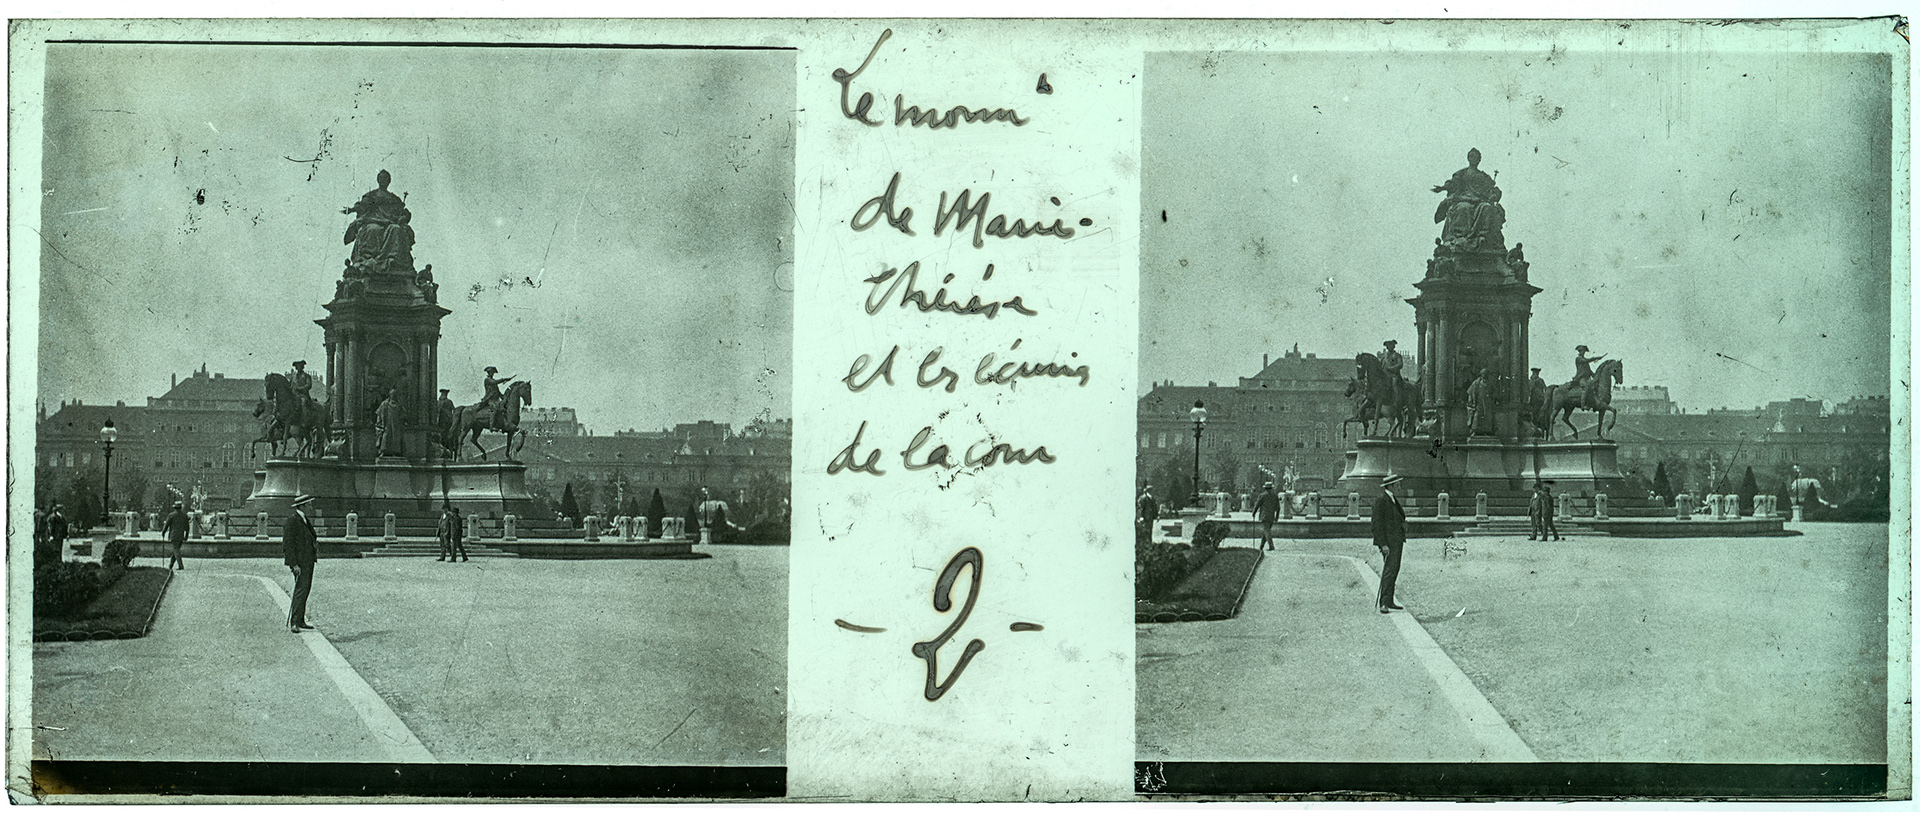 Le monu^t
de Marie-
Thérèse
et les écuries
de la cour
- 2 -